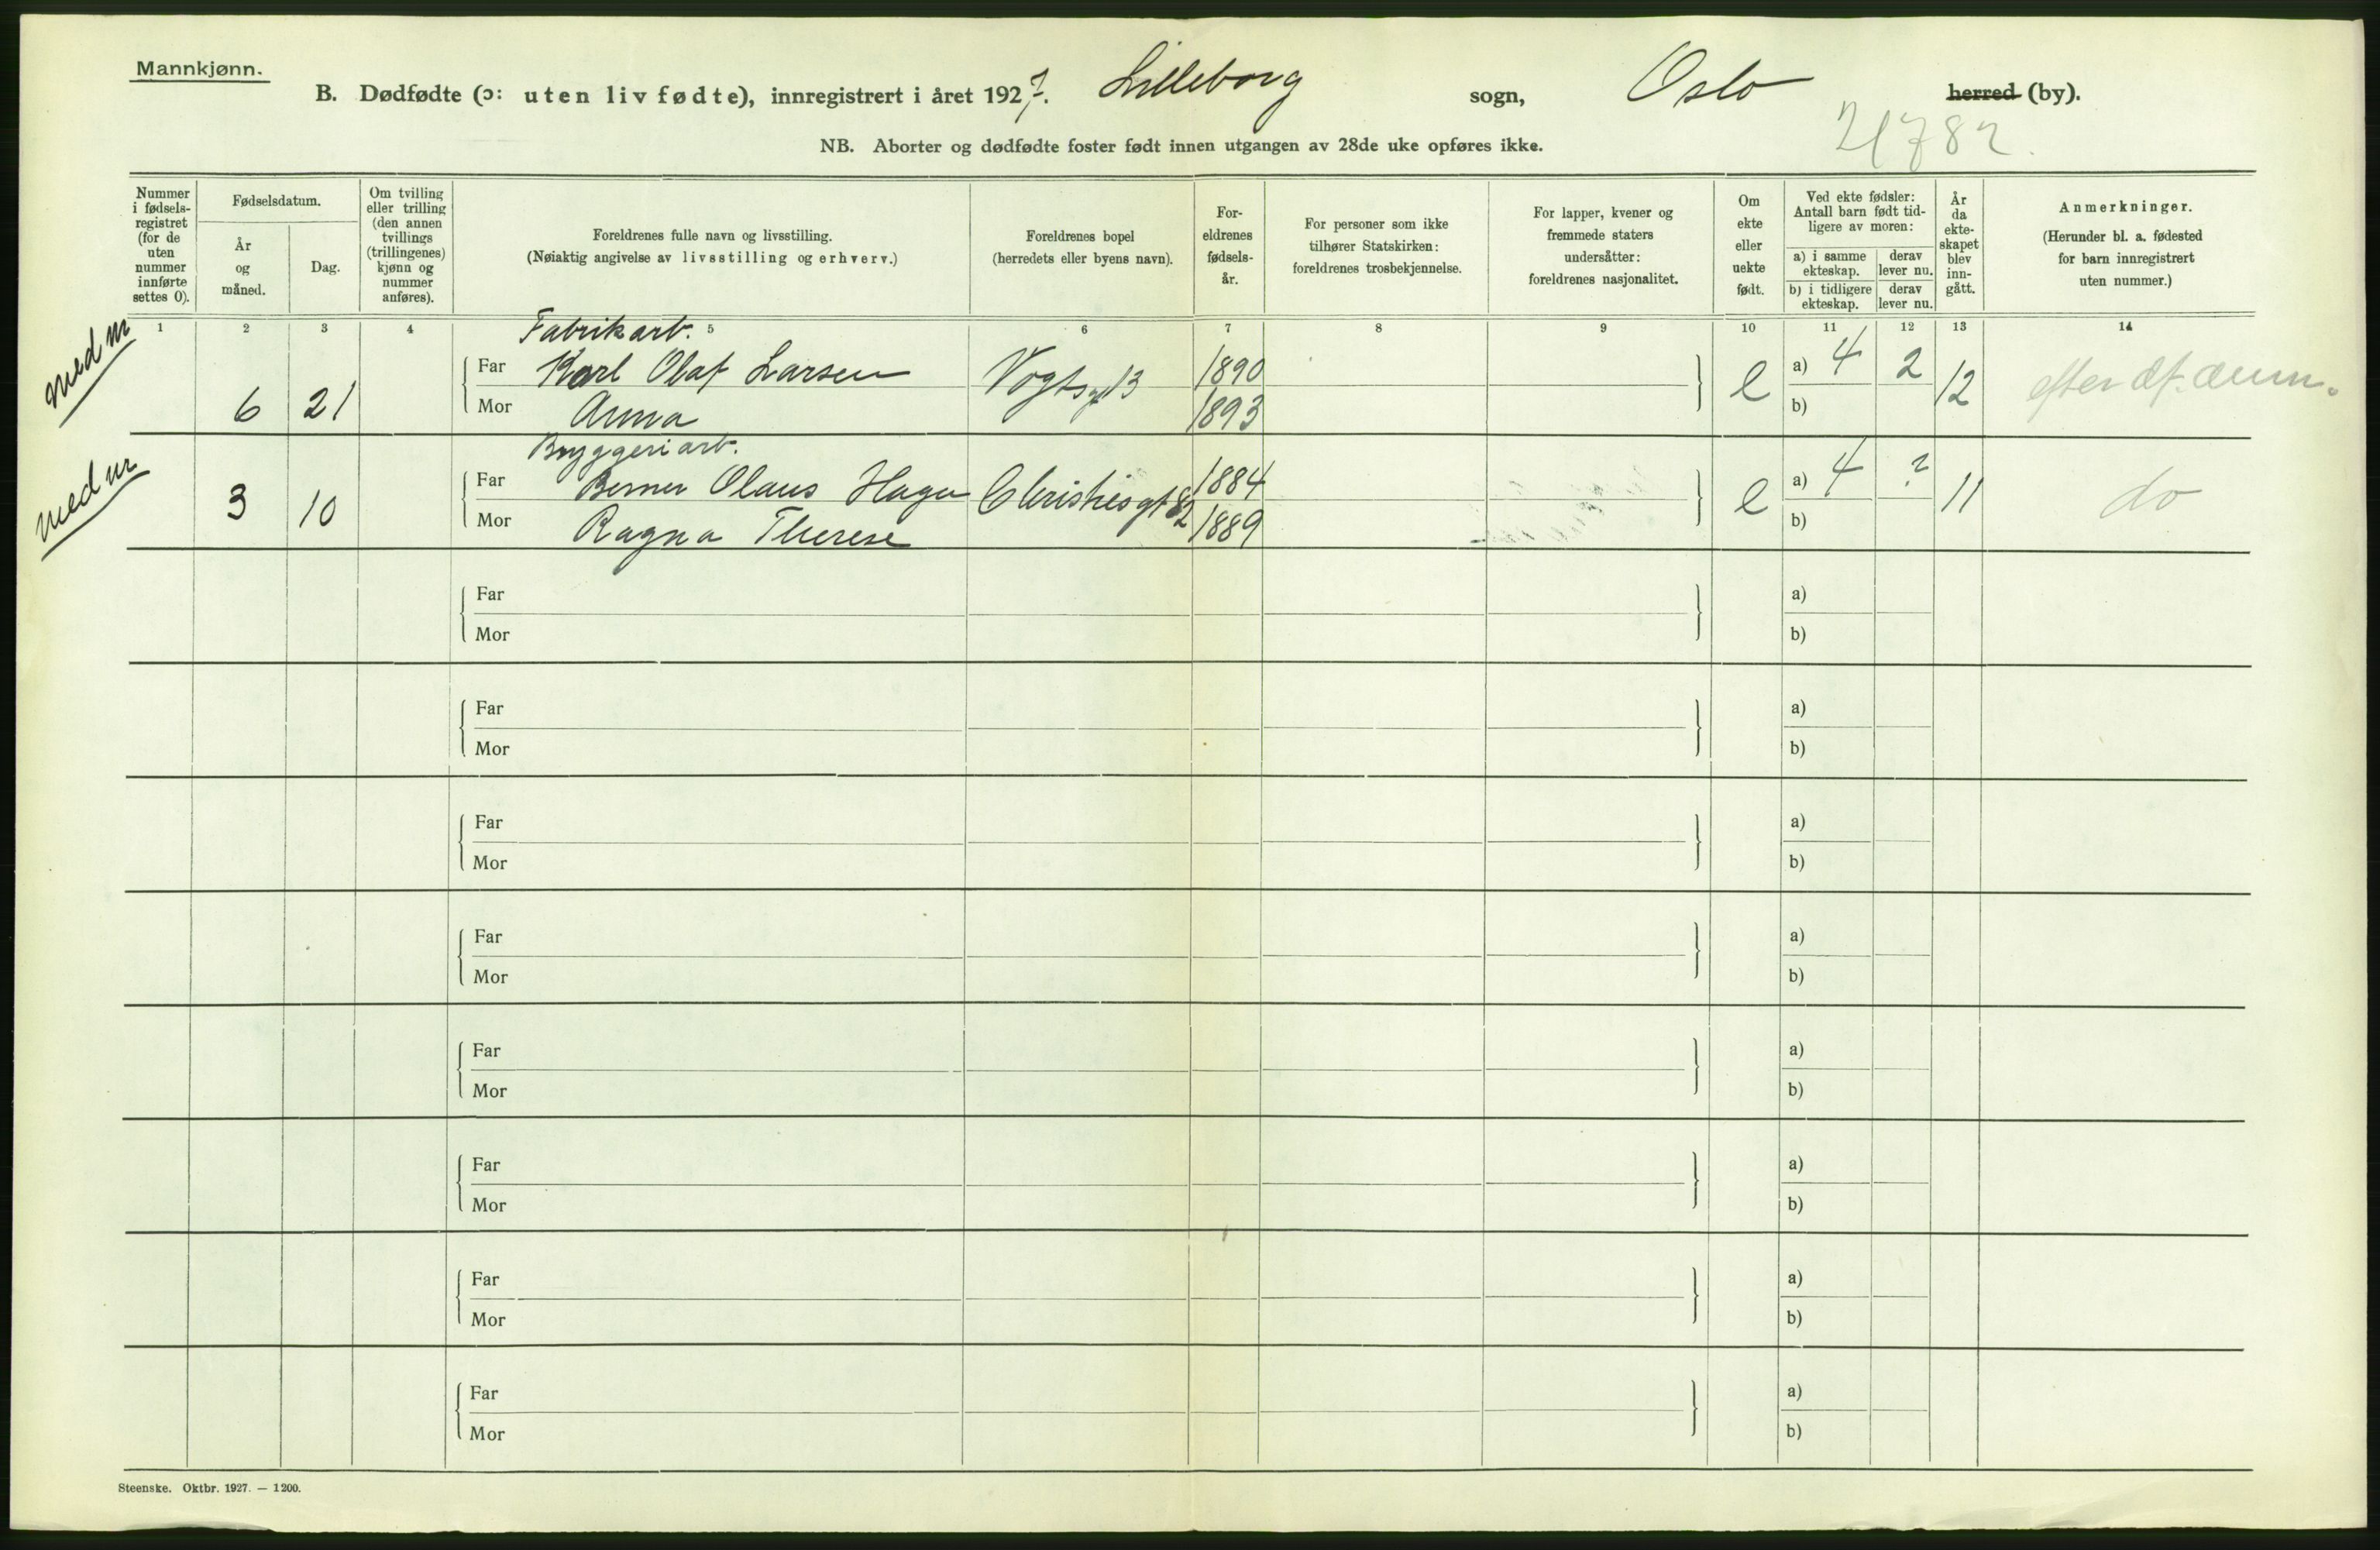 Mannkjønn.
B. Dødfødte (ɔ: uten liv fødte), innregistrert i året 1927. Lilleborg sogn, Oslo herred (by).
21782
NB. Aborter og dødfødte foster født innen utgangen av 28de uke opføres ikke.
Nummer i fødselsregistret (for de uten nummer innførte settes 0).
Fødselsdatum.
År og måned.
Dag.
Om tvilling eller trilling (den annen tvillings (trillingenes) kjønn og nummer anføres).
Foreldrenes fulle navn og livsstilling.
(Nøiaktig angivelse av livsstilling og erhverv.)
Foreldrenes bopel
(herredets eller byens navn).
Foreldrenes fødselsår.
For personer som ikke tilhører Statskirken: foreldrenes trosbekjennelse.
For lapper, kvener og fremmede staters undersåtter: foreldrenes nasjonalitet.
Om ekte eller uekte født.
Ved ekte fødsler: Antall barn født tidligere av moren:
a) i samme ekteskap.
derav lever nu.
b) i tidligere ekteskap.
derav lever nu.
År da ekteskapet blev inngått.
Anmerkninger.
(Herunder bl. a. fødested for barn innregistrert uten nummer.)
1 2 3 4 5 6 7 8 9 10 11 12 13 14
med m
Fabrikarb.
6 21 Far Karl Olaf Larsen Vogtsgt 13 1890 e a) 4 2 12 efter df. anm.
Mor Anna 1893 b)
med m
Bryggeriarb.
3 10 Far Berner Olaus Hagen Christiesgt 82 1884 e a) 4 ? 11 do
Mor Ragna Therese 1889 b)
Far a)
Mor b)
Far a)
Mor b)
Far a)
Mor b)
Far a)
Mor b)
Far a)
Mor b)
Far a)
Mor b)
Far a)
Mor b)
Far a)
Mor b)
Steenske. Oktbr. 1927. — 1200.